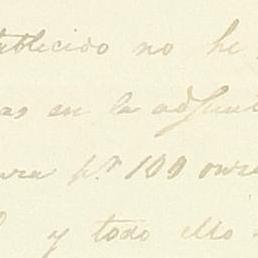 tablecido no he
as en la adjun
ura p.r 100 onz
y todo ello